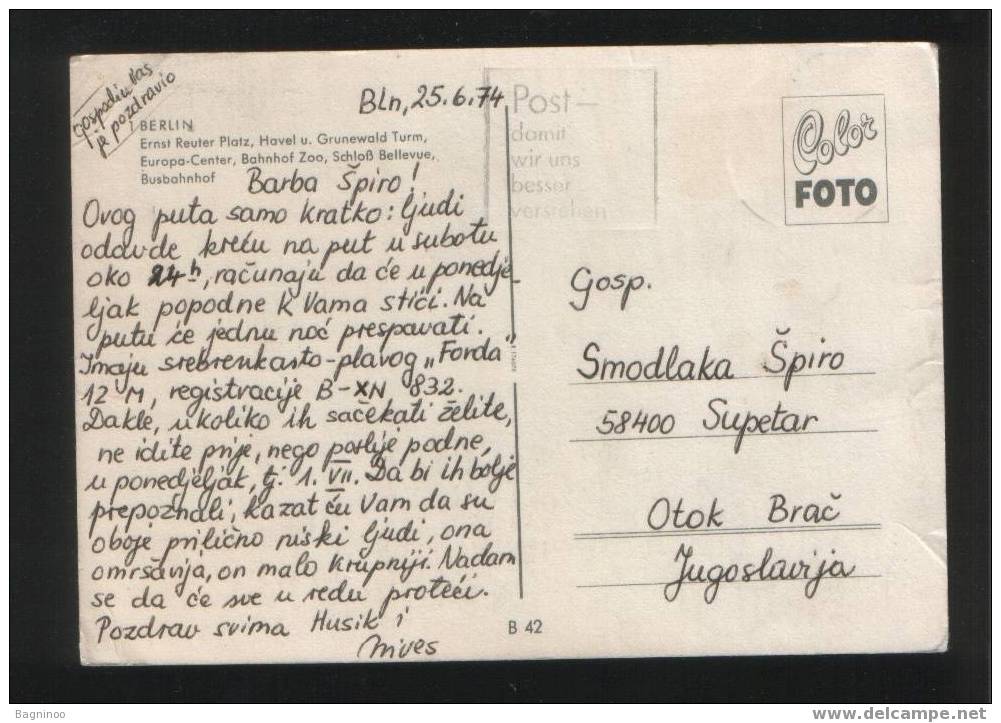 Gospodin Vas
je pozdravio
Bln, 25.6.74
BERLIN
Ernst Reuter Platz, Havel u. Grunewald Turm,
Europa-Center, Bahnhof Zoo, Schloß Bellevue,
Busbahnhof
Barba Špiro!
Ovog puta samo kratko: ljudi
odavde kreću na put u subotu
oko 24h, računaju da će u ponedje-
ljak popodne k Vama stići. Na
putu će jednu noć prespavati.
Imaju srebrenkasto-plavog „Forda"
12 M, registracije B-XN 832.
Dakle, ukoliko ih sačekati želite,
ne idite prije, nego poslije podne,
u ponedjeljak, tj. 1. VII. Da bi ih bolje
prepoznali, kazat ću Vam da su
oboje prilično niski ljudi, ona
omršavija, on malo krupniji. Nadam
se da će sve u redu proteći.
Pozdrav svima Husik i
Nives
Post-
damit
wir uns
besser
verstehen
Color
FOTO
Gosp.
Smodlaka Špiro
58400 Supetar
Otok Brač
Jugoslavija
B 42
Bagninoo
www.delcampe.net